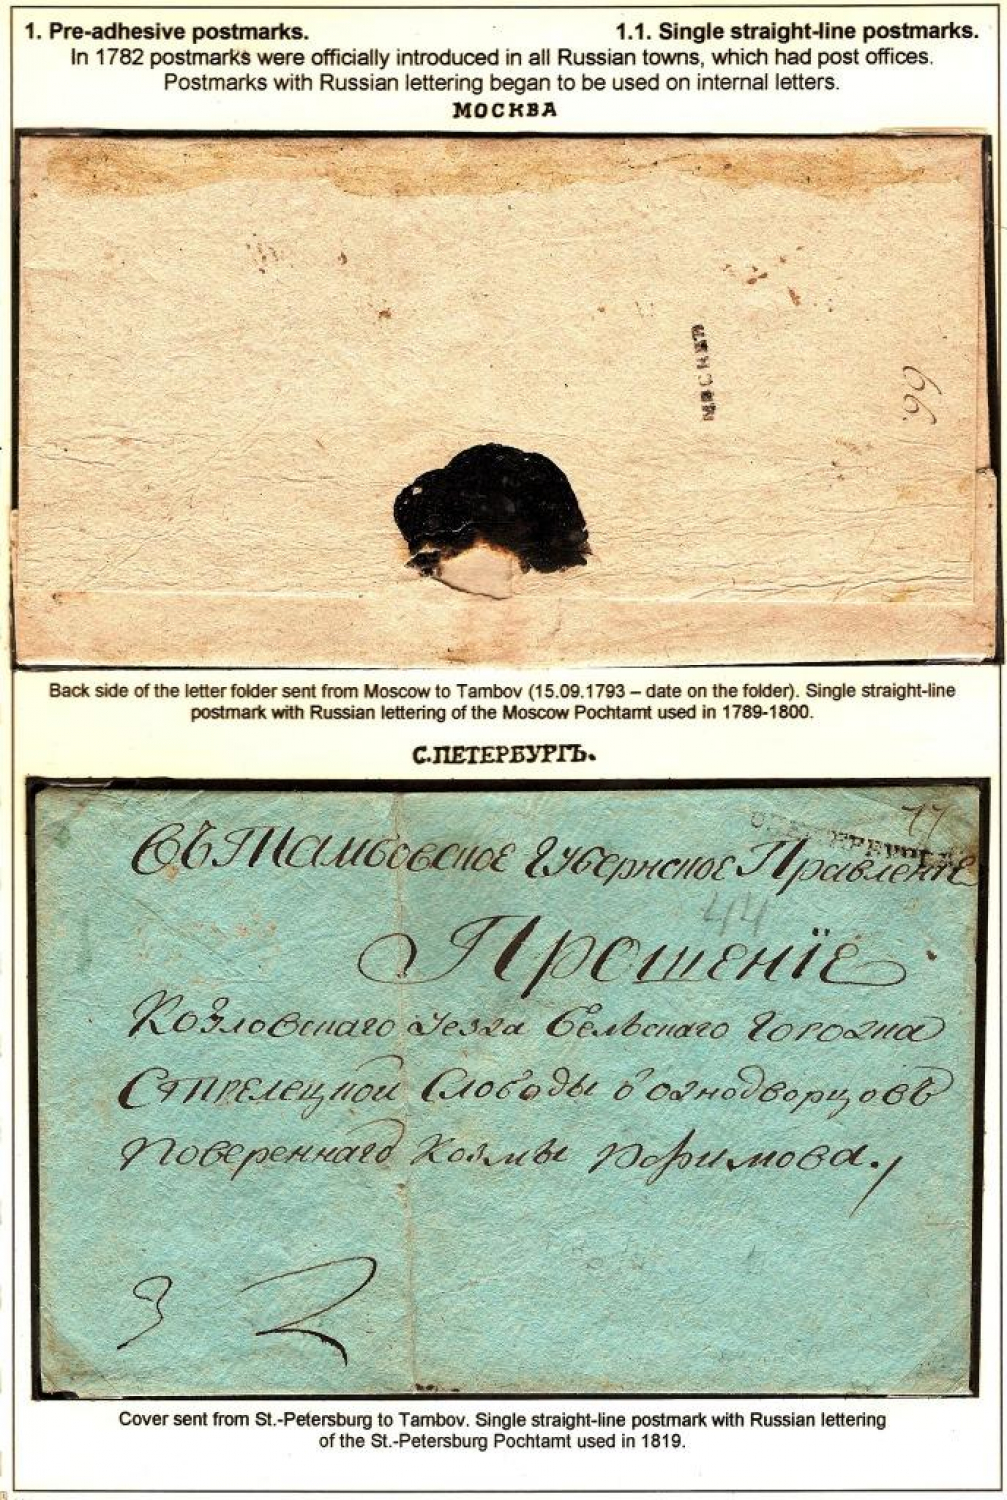 1. Pre-adhesive postmarks. 1.1. Single straight-line postmarks.
In 1782 postmarks were officially introduced in all Russian towns, which had post offices.
Postmarks with Russian lettering began to be used on internal letters.
МОСКВА
МОСКВА
66.
Back side of the letter folder sent from Moscow to Tambov (15.09.1793 – date on the folder). Single straight-line
postmark with Russian lettering of the Moscow Pochtamt used in 1789-1800.
С.ПЕТЕРБУРГЪ.
77
Въ Тамбовское Губернское Правленіе
44
Прошенїе
Козловскаго уезда Бельскаго городка
Стрелецкой Слободы однодворцовъ
Повереннаго Козмы
3 2
Cover sent from St.-Petersburg to Tambov. Single straight-line postmark with Russian lettering
of the St.-Petersburg Pochtamt used in 1819.